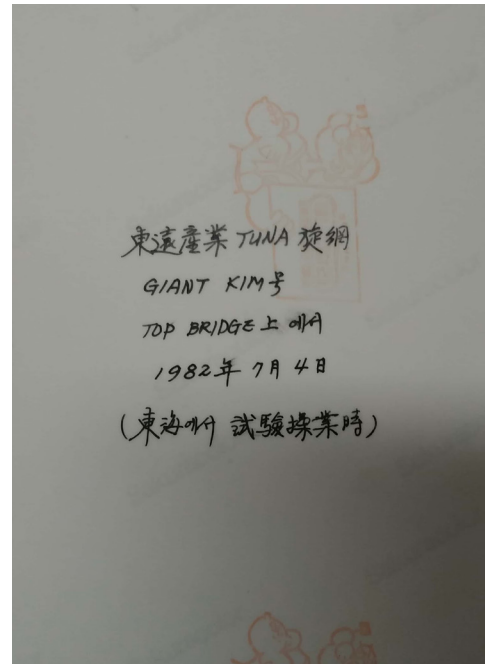 東遠産業 TUNA 旋網
GIANT KIM号
TOP BRIDGE 上 에서
1982年 7月 4日
(東海에서 試驗操業時)